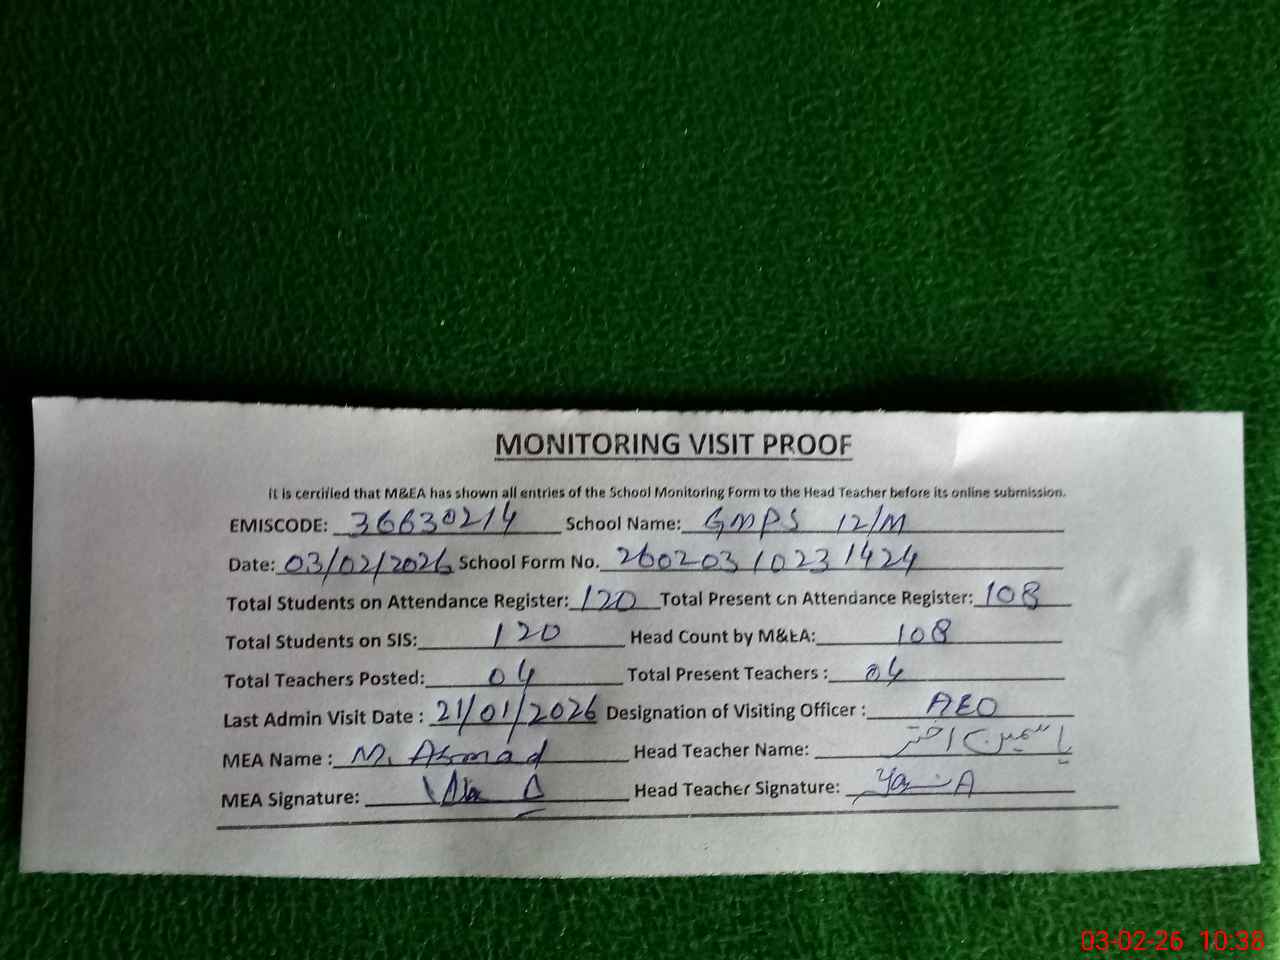 MONITORING VISIT PROOF
it is certified that M&EA has shown all entries of the School Monitoring Form to the Head Teacher before its online submission.
EMISCODE: 36630214 School Name: GMPS 12/M
Date: 03/02/2026 School Form No. 26020310231424
Total Students on Attendance Register: 120 Total Present on Attendance Register: 108
Total Students on SIS: 120 Head Count by M&EA: 108
Total Teachers Posted: 04 Total Present Teachers : 04
Last Admin Visit Date : 21/01/2026 Designation of Visiting Officer : AEO
MEA Name : M. Ahmad Head Teacher Name: یاسمین اختر
MEA Signature: Head Teacher Signature:
03-02-26 10:38